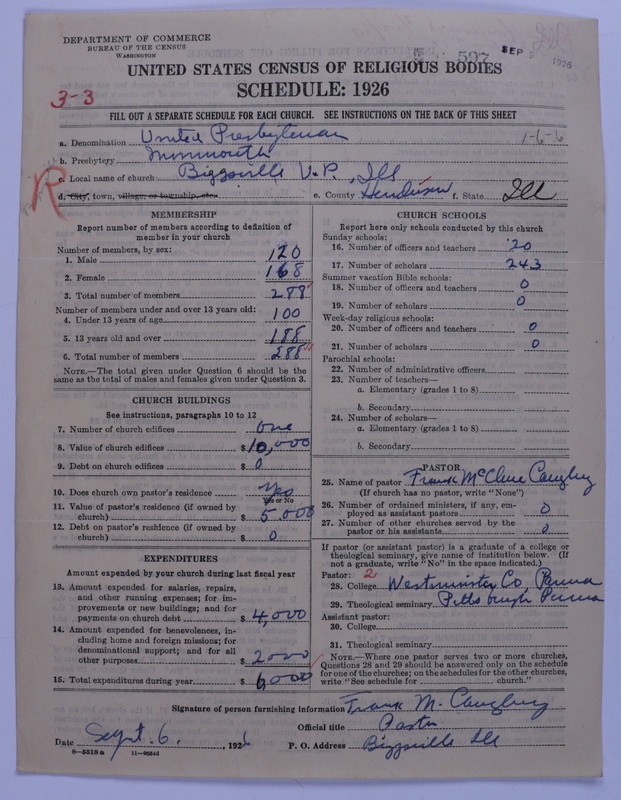 DEPARTMENT OF COMMERCE
BUREAU OF THE CENSUS
WASHINGTON
597
SEP
1926
UNITED STATES CENSUS OF RELIGIOUS BODIES
SCHEDULE: 1926
3-3
FILL OUT A SEPARATE SCHEDULE FOR EACH CHURCH. SEE INSTRUCTIONS ON THE BACK OF THIS SHEET
a. Denomination United Presbyterian 1-6-6
b. Presbytery Monmouth
c. Local name of church Biggsville U.P., Ill
R
d. City, town, village, or township, etc. e. County Henderson f. State Ill
MEMBERSHIP
Report number of members according to definition of
member in your church
Number of members, by sex:
1. Male 120
2. Female 168
3. Total number of members 288
Number of members under and over 13 years old:
4. Under 13 years of age 100
5. 13 years old and over 188
6. Total number of members 288
NOTE.—The total given under Question 6 should be the
same as the total of males and females given under Question 3.
CHURCH BUILDINGS
See instructions, paragraphs 10 to 12
7. Number of church edifices one
8. Value of church edifices $10,000
9. Debt on church edifices $ 0
10. Does church own pastor's residence Yes
Yes or No
11. Value of pastor's residence (if owned by
church) $ 5,000
12. Debt on pastor's residence (if owned by
church) $ 0
EXPENDITURES
Amount expended by your church during last fiscal year
13. Amount expended for salaries, repairs,
and other running expenses; for im-
provements or new buildings; and for
payments on church debt $ 4,000
14. Amount expended for benevolences, in-
cluding home and foreign missions; for
denominational support; and for all
other purposes $ 2000
15. Total expenditures during year $ 6,000
CHURCH SCHOOLS
Report here only schools conducted by this church
Sunday schools:
16. Number of officers and teachers 20
17. Number of scholars 243
Summer vacation Bible schools:
18. Number of officers and teachers 0
19. Number of scholars 0
Week-day religious schools:
20. Number of officers and teachers 0
21. Number of scholars 0
Parochial schools:
22. Number of administrative officers
23. Number of teachers—
a. Elementary (grades 1 to 8)
b. Secondary
24. Number of scholars—
a. Elementary (grades 1 to 8)
b. Secondary
PASTOR
25. Name of pastor Frank McClure Caughey
(If church has no pastor, write "None")
26. Number of ordained ministers, if any, em-
ployed as assistant pastors 0
27. Number of other churches served by the
pastor or his assistants 0
If pastor (or assistant pastor) is a graduate of a college or
theological seminary, give name of institution below. (If
not a graduate, write "No" in the space indicated.)
Pastor: 2
28. College Westminster Co, Penna
29. Theological seminary Pittsburgh Penna
Assistant pastor:
30. College
31. Theological seminary
NOTE.—Where one pastor serves two or more churches,
Questions 28 and 29 should be answered only on the schedule
for one of the churches; on the schedules for the other churches,
write "See schedule for church."
Signature of person furnishing information Frank M. Caughey
Official title Pastor
Date Sept 6, 1926 P. O. Address Biggsville Ill
8—5518a 11—9054d